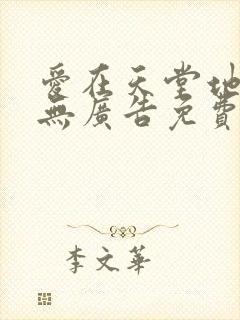 愛在天堂地
無廣告免費
李文華